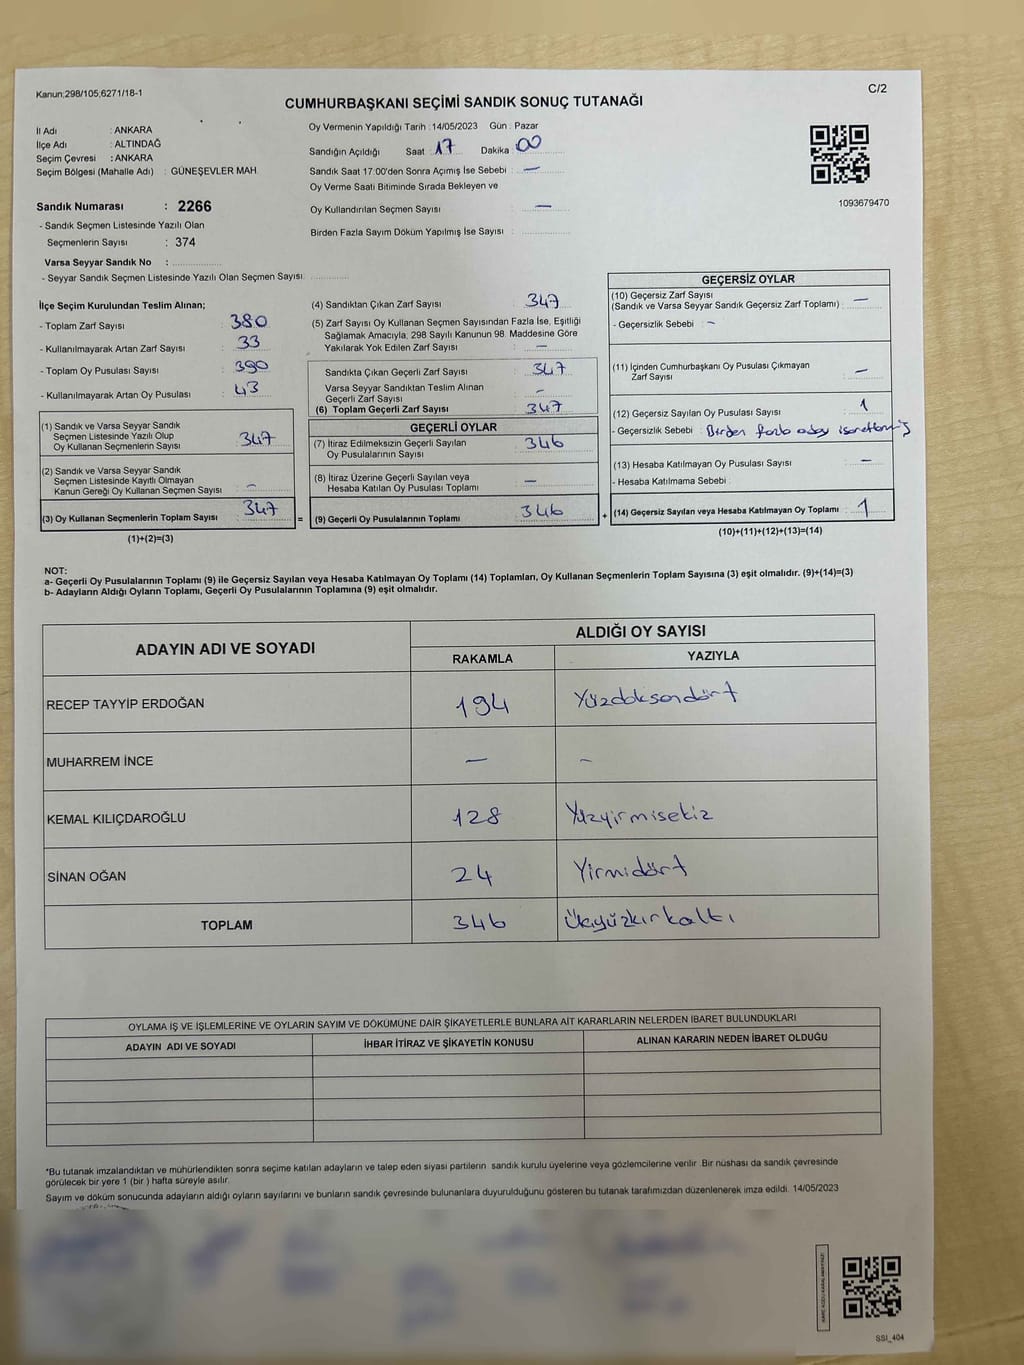 Kanun;298/105,6271/18-1
C/2
CUMHURBAŞKANI SEÇİMİ SANDIK SONUÇ TUTANAĞI
İl Adı : ANKARA
İlçe Adı : ALTINDAĞ
Seçim Çevresi : ANKARA
Seçim Bölgesi (Mahalle Adı) : GÜNEŞEVLER MAH
Sandık Numarası : 2266
- Sandık Seçmen Listesinde Yazılı Olan
Seçmenlerin Sayısı : 374
Varsa Seyyar Sandık No :
- Seyyar Sandık Seçmen Listesinde Yazılı Olan Seçmen Sayısı:
Oy Vermenin Yapıldığı Tarih : 14/05/2023 Gün : Pazar
Sandığın Açıldığı Saat : 17 Dakika : 00
Sandık Saat 17:00'den Sonra Açımış İse Sebebi : —
Oy Verme Saati Bitiminde Sırada Bekleyen ve
Oy Kullandırılan Seçmen Sayısı : —
Birden Fazla Sayım Döküm Yapılmış İse Sayısı :
1093679470
İlçe Seçim Kurulundan Teslim Alınan;
- Toplam Zarf Sayısı : 380
- Kullanılmayarak Artan Zarf Sayısı : 33
- Toplam Oy Pusulası Sayısı : 390
- Kullanılmayarak Artan Oy Pusulası : 43
(1) Sandık ve Varsa Seyyar Sandık
Seçmen Listesinde Yazılı Olup
Oy Kullanan Seçmenlerin Sayısı : 347
(2) Sandık ve Varsa Seyyar Sandık
Seçmen Listesinde Kayıtlı Olmayan
Kanun Gereği Oy Kullanan Seçmen Sayısı : —
(3) Oy Kullanan Seçmenlerin Toplam Sayısı : 347
(1)+(2)=(3)
(4) Sandıktan Çıkan Zarf Sayısı : 347
(5) Zarf Sayısı Oy Kullanan Seçmen Sayısından Fazla İse, Eşitliği
Sağlamak Amacıyla, 298 Sayılı Kanunun 98. Maddesine Göre
Yakılarak Yok Edilen Zarf Sayısı : —
Sandıkta Çıkan Geçerli Zarf Sayısı : 347
Varsa Seyyar Sandıktan Teslim Alınan
Geçerli Zarf Sayısı : —
(6) Toplam Geçerli Zarf Sayısı : 347
GEÇERLİ OYLAR
(7) İtiraz Edilmeksizin Geçerli Sayılan
Oy Pusulalarının Sayısı : 346
(8) İtiraz Üzerine Geçerli Sayılan veya
Hesaba Katılan Oy Pusulası Toplamı : —
= (9) Geçerli Oy Pusulalarının Toplamı : 346
GEÇERSİZ OYLAR
(10) Geçersiz Zarf Sayısı
(Sandık ve Varsa Seyyar Sandık Geçersiz Zarf Toplamı) : —
- Geçersizlik Sebebi : —
(11) İçinden Cumhurbaşkanı Oy Pusulası Çıkmayan
Zarf Sayısı : —
(12) Geçersiz Sayılan Oy Pusulası Sayısı : 1
- Geçersizlik Sebebi : Birden fazla aday işaretlenmiş
(13) Hesaba Katılmayan Oy Pusulası Sayısı : —
- Hesaba Katılmama Sebebi :
+ (14) Geçersiz Sayılan veya Hesaba Katılmayan Oy Toplamı : 1
(10)+(11)+(12)+(13)=(14)
NOT:
a- Geçerli Oy Pusulalarının Toplamı (9) ile Geçersiz Sayılan veya Hesaba Katılmayan Oy Toplamı (14) Toplamları, Oy Kullanan Seçmenlerin Toplam Sayısına (3) eşit olmalıdır. (9)+(14)=(3)
b- Adayların Aldığı Oyların Toplamı, Geçerli Oy Pusulalarının Toplamına (9) eşit olmalıdır.
ADAYIN ADI VE SOYADI
ALDIĞI OY SAYISI
RAKAMLA YAZIYLA
RECEP TAYYİP ERDOĞAN 194 Yüzdoksandört
MUHARREM İNCE — —
KEMAL KILIÇDAROĞLU 128 Yüzyirmisekiz
SİNAN OĞAN 24 Yirmidört
TOPLAM 346 Üçyüzkırkaltı
OYLAMA İŞ VE İŞLEMLERİNE VE OYLARIN SAYIM VE DÖKÜMÜNE DAİR ŞİKAYETLERLE BUNLARA AİT KARARLARIN NELERDEN İBARET BULUNDUKLARI
ADAYIN ADI VE SOYADI İHBAR İTİRAZ VE ŞİKAYETİN KONUSU ALINAN KARARIN NEDEN İBARET OLDUĞU
*Bu tutanak imzalandıktan ve mühürlendikten sonra seçime katılan adayların ve talep eden siyasi partilerin sandık kurulu üyelerine veya gözlemcilerine verilir. Bir nüshası da sandık çevresinde
görülecek bir yere 1 (bir ) hafta süreyle asılır.
Sayım ve döküm sonucunda adayların aldığı oyların sayılarını ve bunların sandık çevresinde bulunanlara duyurulduğunu gösteren bu tutanak tarafımızdan düzenlenerek imza edildi. 14/05/2023
SSI_404